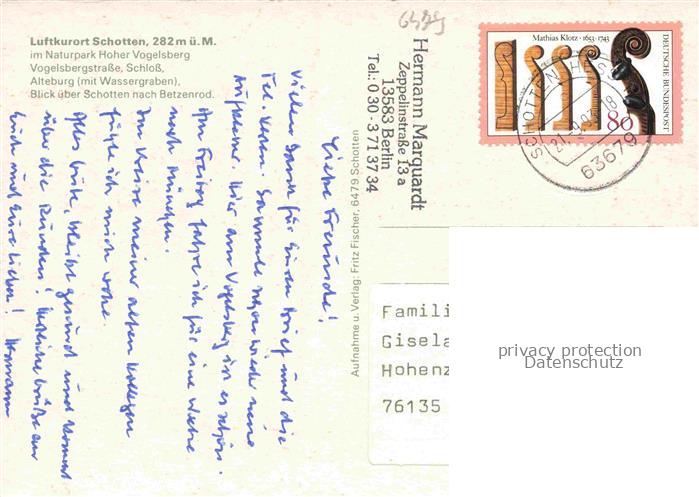 Luftkurort Schotten, 282 m ü. M.
im Naturpark Hoher Vogelsberg
Vogelsbergstraße, Schloß,
Alteburg (mit Wassergraben),
Blick über Schotten nach Betzenrod.
Liebe Freunde!
Vielen Dank für Euren Brief und die
Tel. Karten. Sammele schon wieder neue
Hier am Vogelsberg ist es schön.
Am Freitag fahre ich für eine Woche
nach München.
Im Kreise meiner alten Kollegen
fühle ich mich wohl.
Alles Gute, bleibt gesund und kommt
über die Runden! Herzliche Grüße an
Euch und Eure Lieben! Hermann
Aufnahme u. Verlag: Fritz Fischer, 6479 Schotten
Hermann Marquardt
Zeppelinstraße 13 a
13583 Berlin
Tel.: 0 30 - 3 71 37 34
Mathias Klotz · 1653-1743
DEUTSCHE BUNDESPOST
80
SCHOTTEN, HESS
63679
Famili
Gisela
Hohenz
76135
privacy protection
Datenschutz